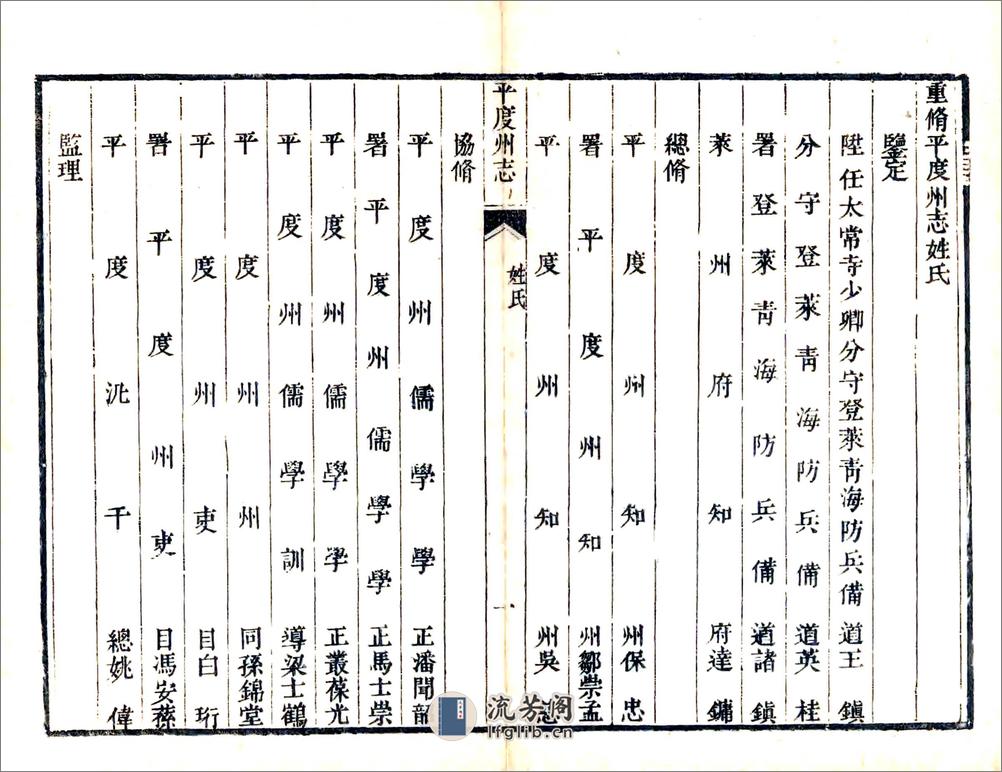 重脩平度州志姓氏
鑒定
陞任太常寺少卿分守登萊靑海防兵備道王鎭
分守登萊靑海防兵備道英桂
署登萊靑海防兵備道諸鎭
萊州府知府達鏞
總脩
平度州知州保忠
署平度州知州鄒崇孟
平度州知州吳
平度州志
姓氏
一
協脩
平度州儒學學正潘聞龍
署平度州儒學學正馬士崇
平度州儒學學正叢葆光
平度州儒學訓導梁士鶴
平度州州同孫錦堂
平度州吏目白珩
署平度州吏目馮安
平度汛千總姚偉
監理
流芳阁
lfglib.cn